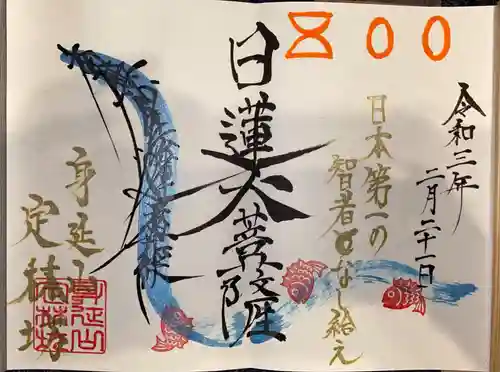 800
令和三年
二月二十一日
日本第一の
智者となし給え
日蓮大菩薩
南無妙法蓮華経
身延山
定林坊